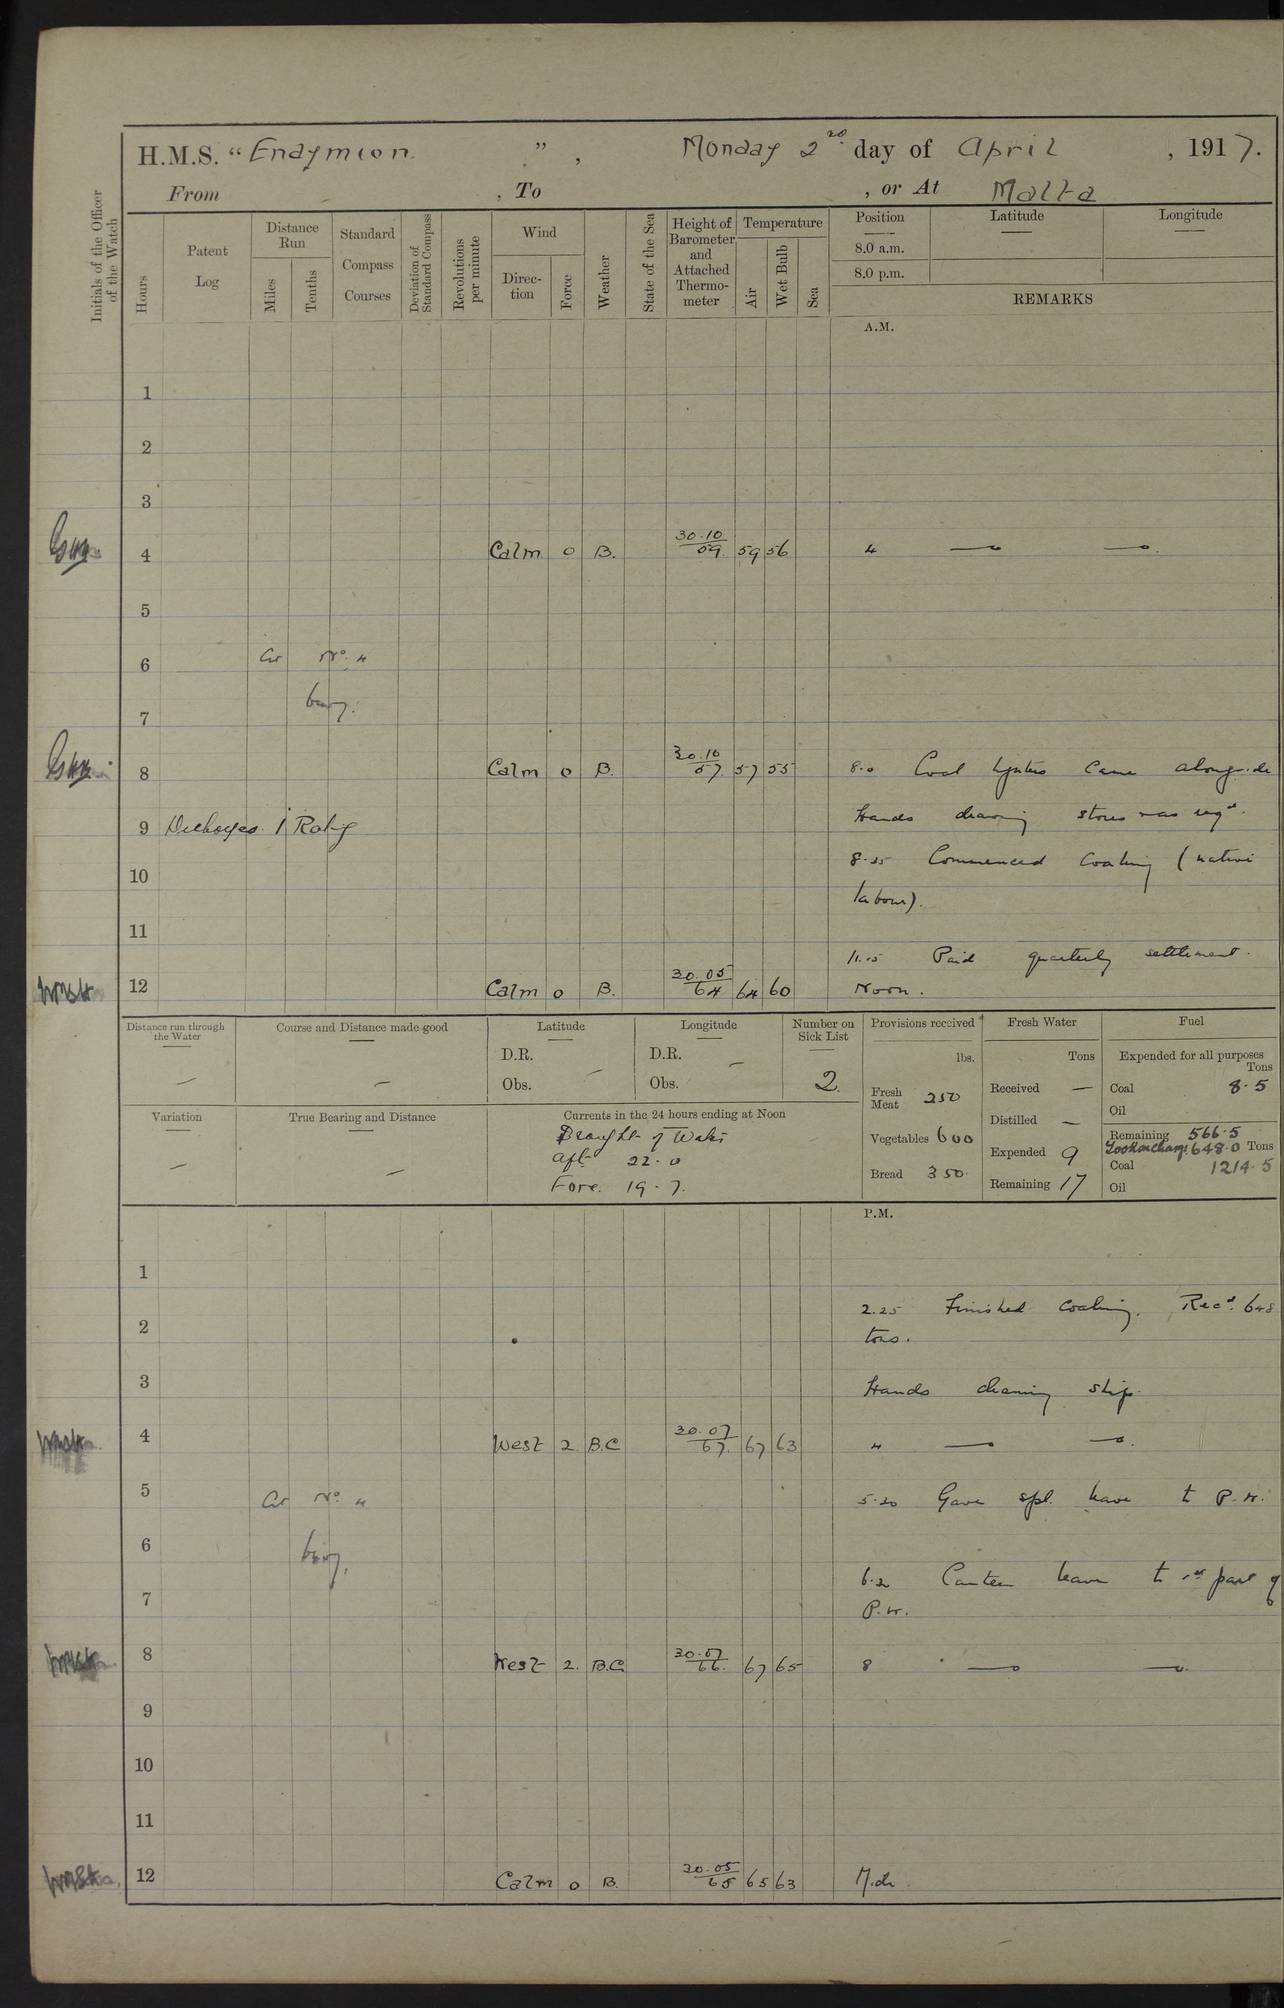 H.M.S. “Endymion ” , Monday 2nd day of April , 1917.
From , To , or At Malta
Initials of the Officer of the Watch
Hours
Patent Log
Distance Run
Miles
Tenths
Standard Compass Courses
Deviation of Standard Compass
Revolutions per minute
Wind
Direc-tion
Force
Weather
State of the Sea
Height of Barometer and Attached Thermo-meter
Temperature
Air
Wet Bulb
Sea
Position
8.0 a.m.
8.0 p.m.
Latitude
Longitude
REMARKS
A.M.
1
2
3
4 Calm 0 B. 30.10 59 59 56 4
5
6 No. 4
7
8 Calm 0 B. 30.10 57 57 55 8.0 Coal lighters came alongside
9 Discharged 1 Rating Hands drawing stores & as reqd.
8.25 Commenced Coaling (native
10
labour).
11
11.15 Paid quarterly settlement.
12 Calm 0 B. 30.05 64 64 60 Noon.
Distance run through the Water
Course and Distance made good
Latitude
D.R.
Obs.
Longitude
D.R.
Obs.
Number on Sick List
2
Provisions received
lbs.
Fresh Meat 250
Vegetables 600
Bread 350
Fresh Water
Tons
Received —
Distilled —
Expended 9
Remaining 17
Fuel
Expended for all purposes
Tons
Coal 8.5
Oil
Remaining 566.5
648.0 Tons
Coal 1214.5
Oil
Variation
True Bearing and Distance
Currents in the 24 hours ending at Noon
Draught of Water
Aft 22.0
Fore. 19.7.
P.M.
1
2.25 Finished coaling. Recd. 648
2
tons.
3 Hands cleaning ship.
4 West 2 B.C 30.07 67. 67 63 4
5 No. 4 5.30 Gave spl. leave to P.W.
6
6.30 Canteen leave to 1st part of
7
P.W.
8 West 2. B.C. 30.07 66. 67 65 8
9
10
11
12 Calm 0 B. 30.05 65 65 63 Mid.